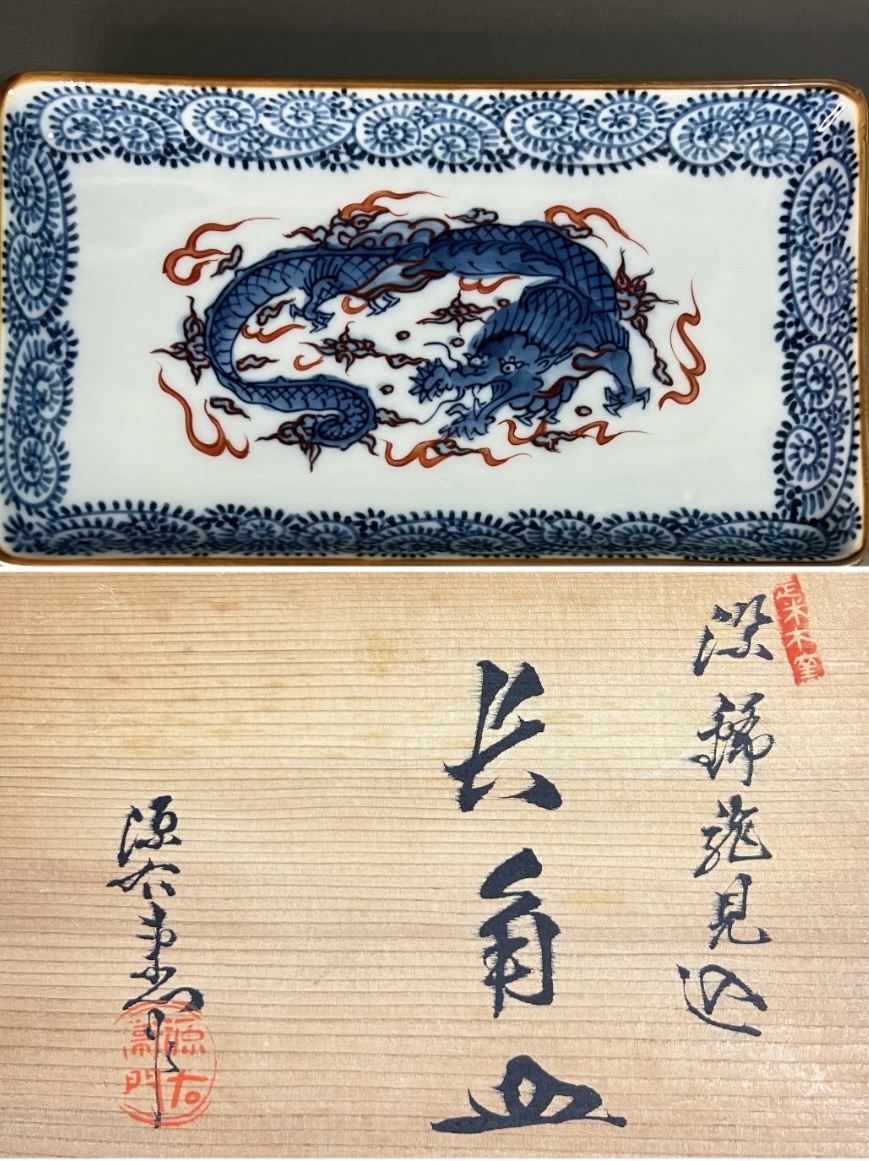 染錦龍見込
長角皿
源右衛門
源右衛門